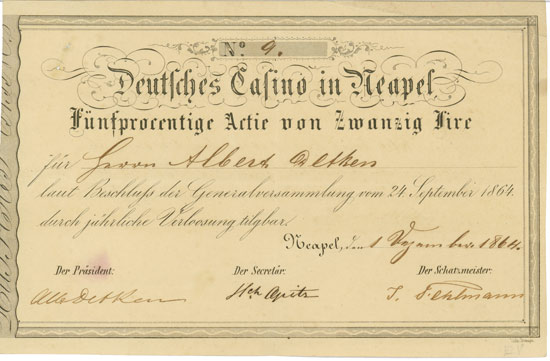 No. 9.
Deutsches Casino in Neapel
Fünfprocentige Actie von Zwanzig Lire
für Herrn Albert Detken
laut Beschluss der Generalversammlung vom 24. September 1864.
durch jährliche Verloosung tilgbar.
Neapel, den 1 Dezember 1864.
Der Präsident: Der Secretär: Der Schatzmeister:
Alb Detken